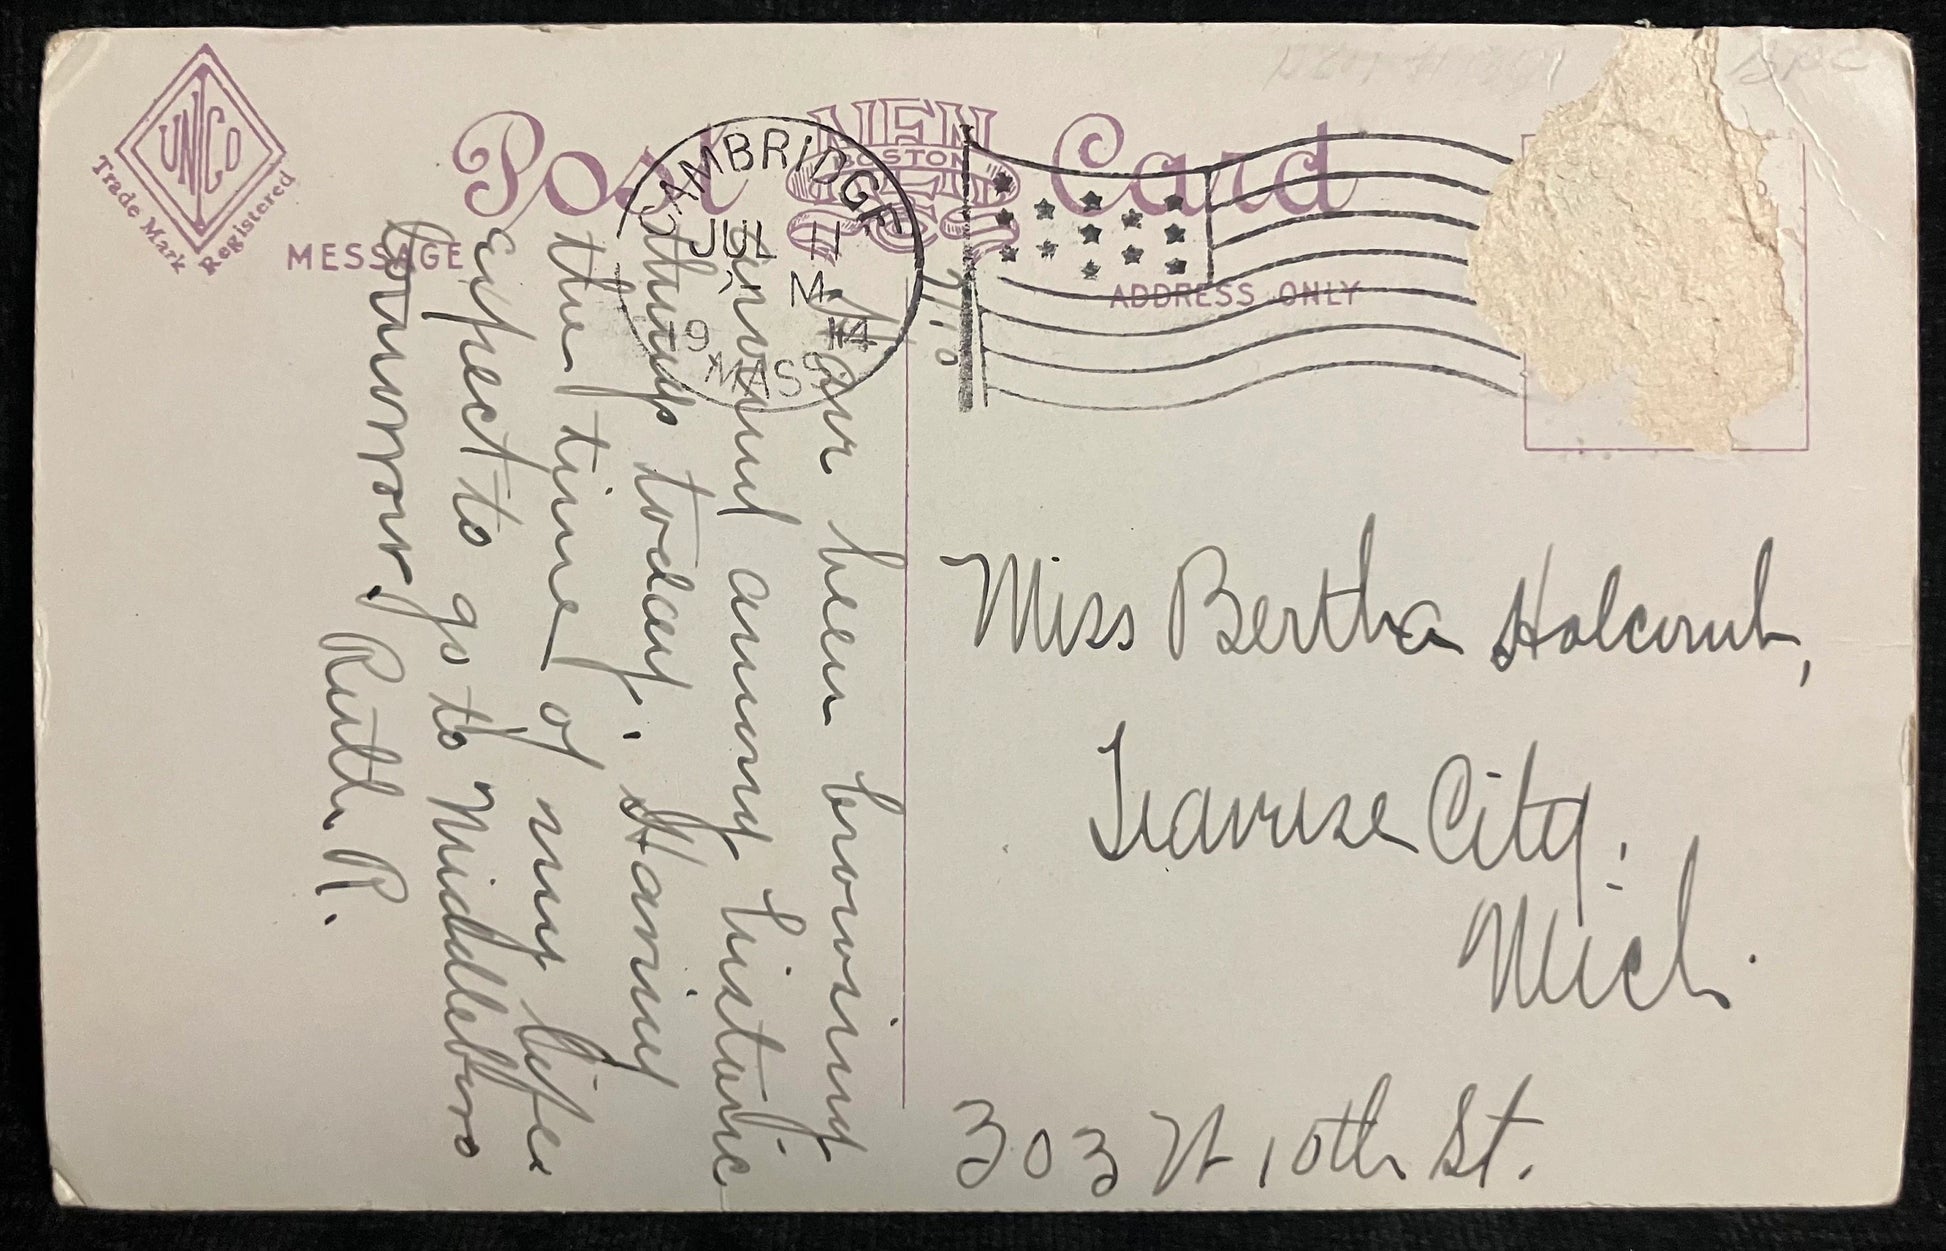 UNCO
Trade Mark Registered
Post Card
NEN
BOSTON
MESSAGE
ADDRESS ONLY
CAMBRIDGE
JUL 11
M
1914
MASS
7/10
Have been browsing
around among historic
things today. Having
the time of my life
expect to go to Middleboro
tomorrow.
Ruth R.
Miss Bertha Holcomb,
Traverse City,
Mich.
303 W 10th St.